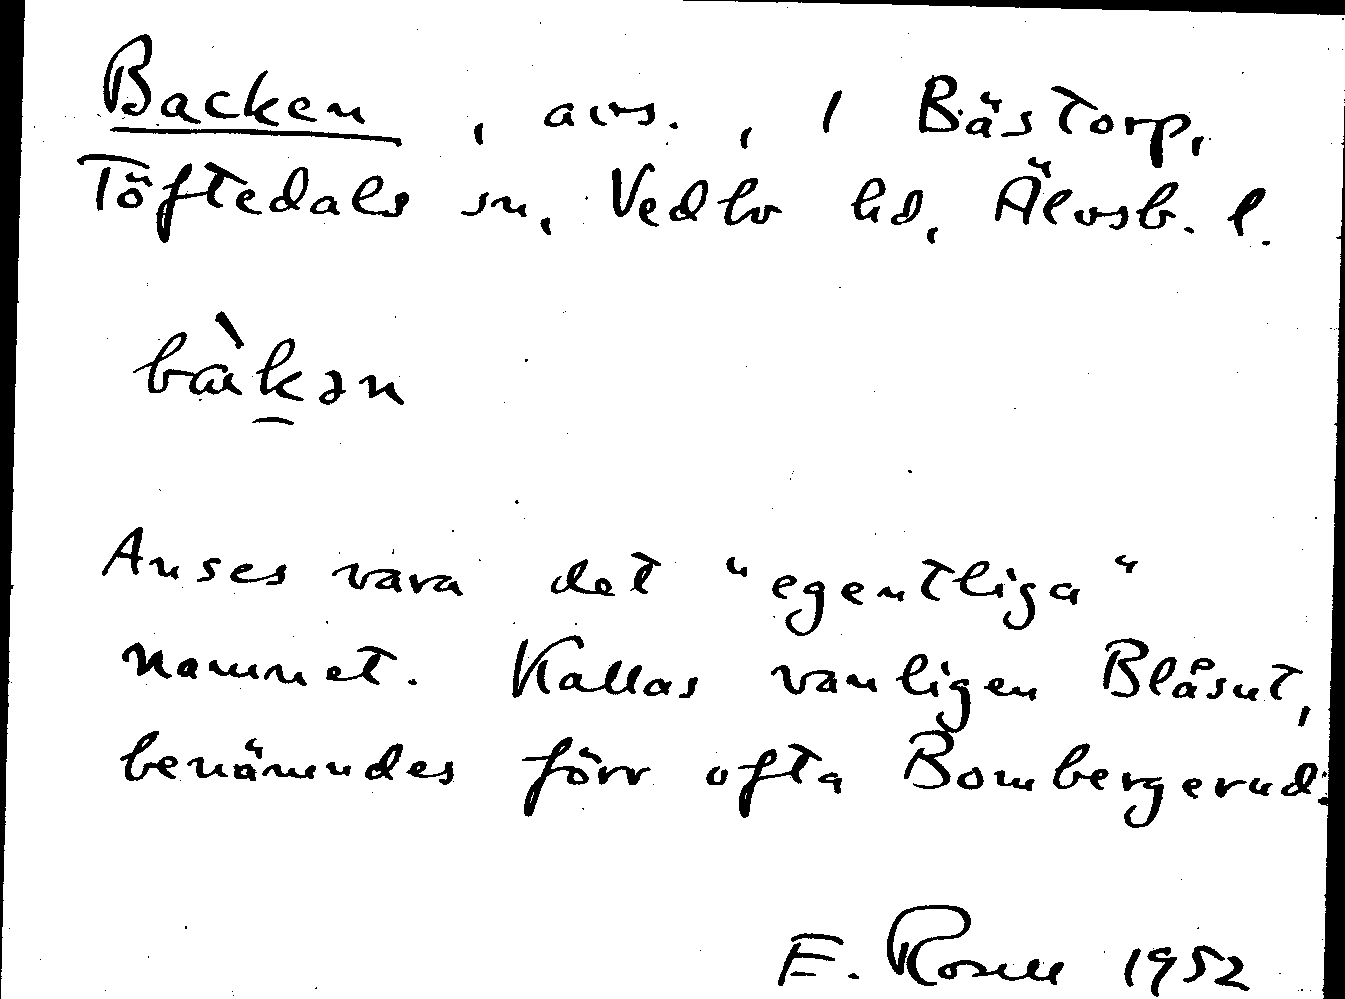 Backen, avs., i Bästorp,
Töftedals sn, Vedbo hd, Älvsb. l.
bàkən
Anses vara det "egentliga"
namnet. Kallas vanligen Blåsut,
benämndes förr ofta Bombergerud.
E. Rosell 1952